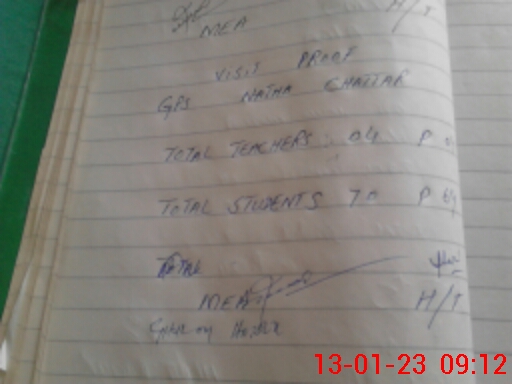 H/T
MEA
VISIT PROOF
GPS NATHA CHATTAR
TOTAL TEACHERS : 04 P
TOTAL STUDENTS 70 P 64
MEA
H/T
13-01-23 09:12